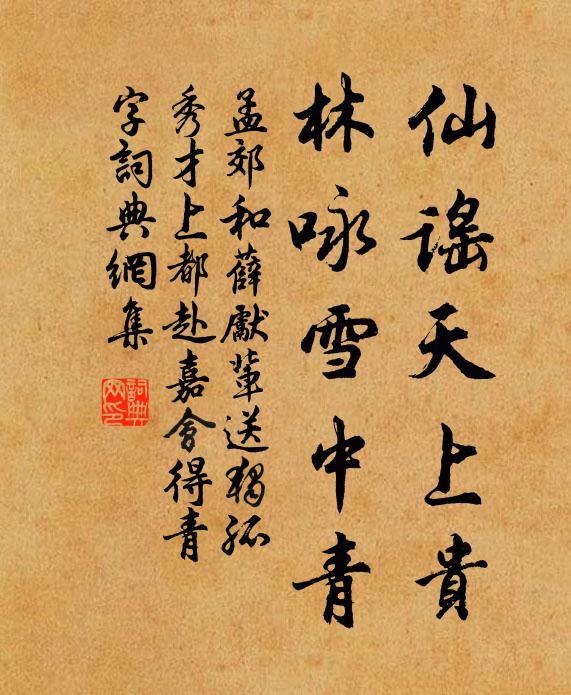 仙謠天上貴
林咏雪中青
孟郊和薛獻輩送獨孤
秀才上都赴嘉會得青
字詞典網集
詞典
網印